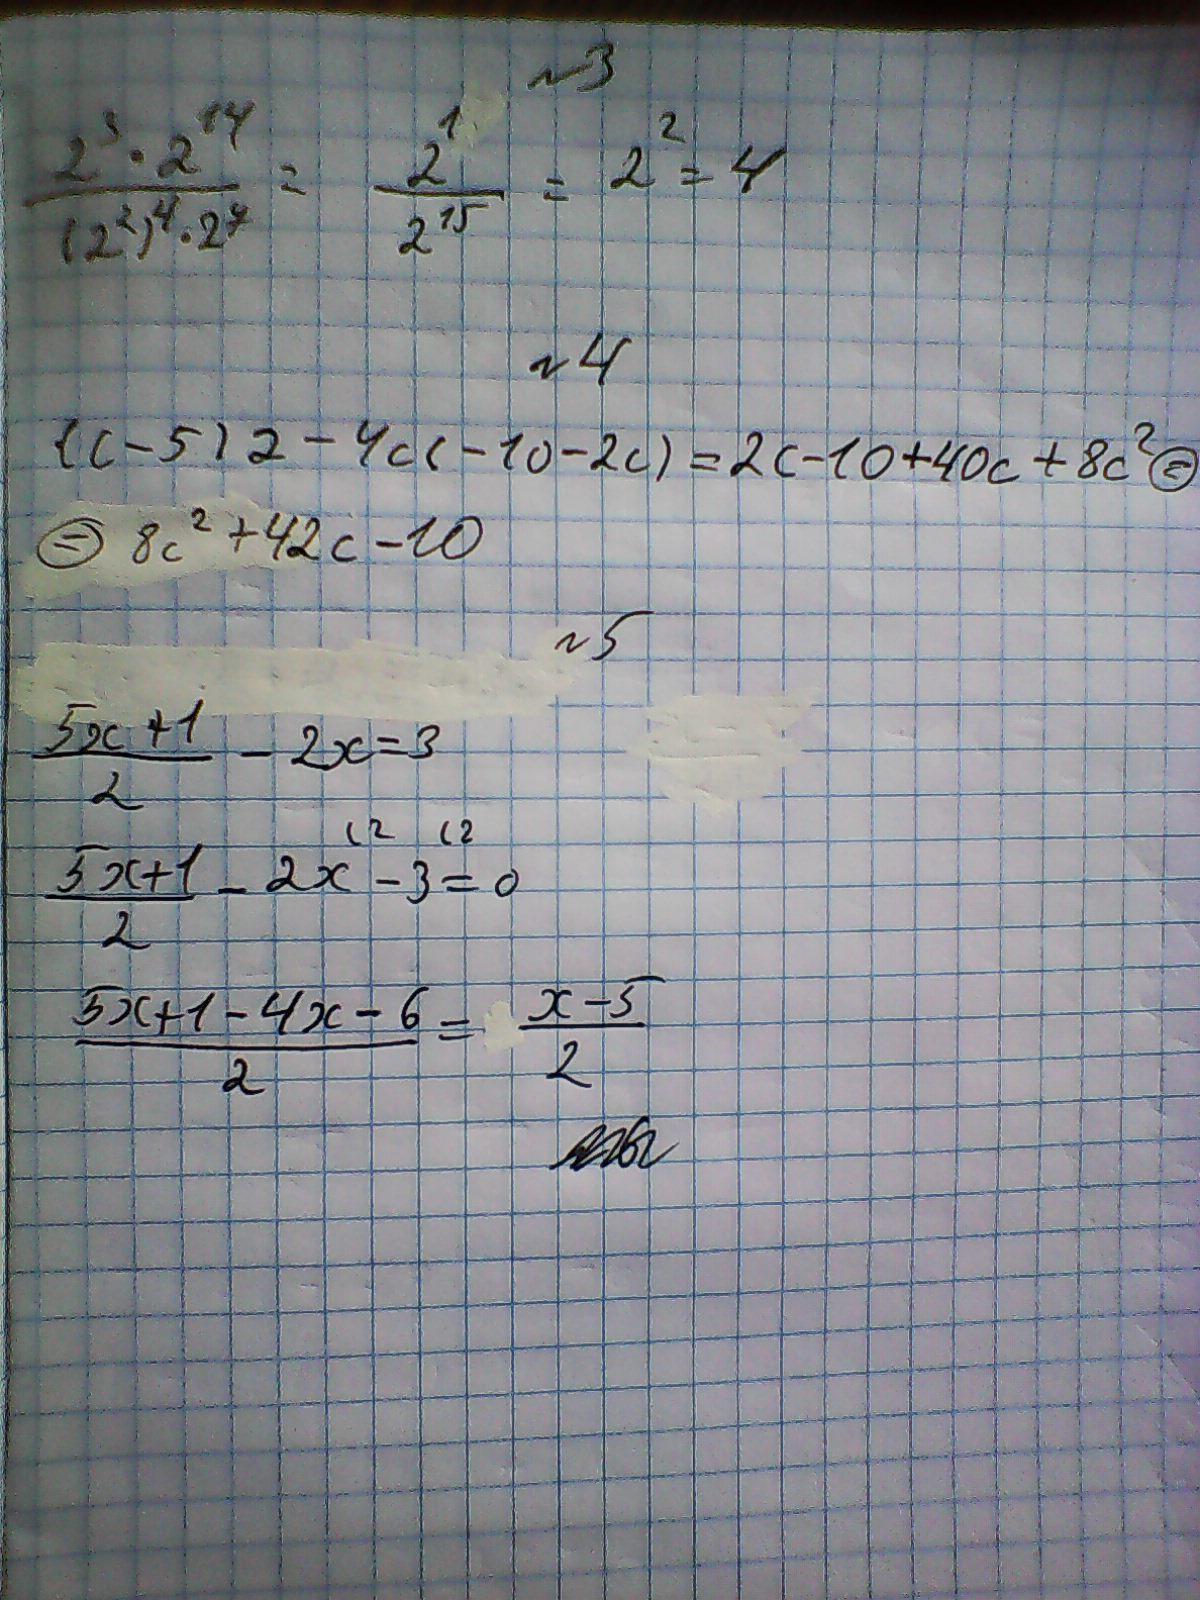 №3
2³ · 2¹⁴ / (2²)⁴ · 2⁷ = 2¹ / 2¹⁵ = 2² = 4
№4
(c-5)2-4c(-10-2c)=2c-10+40c+8c²⊜
⊜ 8c²+42c-10
№5
5x+1 / 2 - 2x=3
5x+1 / 2 - 2x⁽² - 3⁽² = 0
5x+1-4x-6 / 2 = x-5 / 2